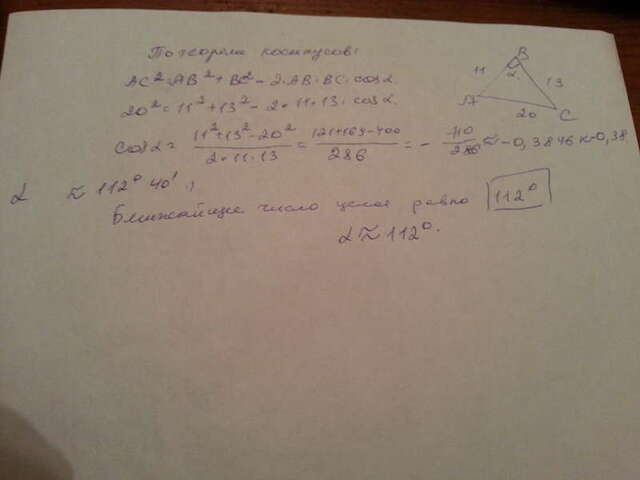 По теореме косинусов:
AC² = AB² + BC² - 2·AB·BC·cosα.
20² = 11² + 13² - 2·11·13·cosα.
cosα = 11²+13²-20² / 2·11·13 = 121+169-400 / 286 = - 110 / 286 ≈ -0,3846 ≈ -0,38
α ≈ 112° 40' ;
Ближайшее число целое равно 112°
α ≈ 112°.
B
11 α 13
A
20 C